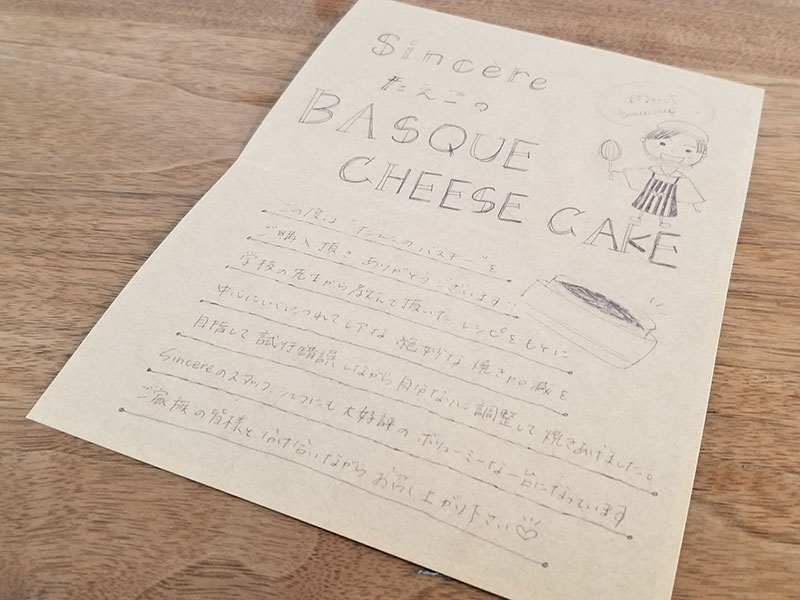 Sincère
たえこの
BASQUE
CHEESE CAKE
この度は"たえこのバスチー"を
ご購入頂き ありがとうございます
学校の先生から教えて頂いた レシピをもとに
中心にいくにつれてレアな 絶妙な焼き加減を
目指して 試行錯誤しながら自分なりに調整して 焼きあげました。
Sincereのスタッフ、シェフにも 大好評の ボリューミーな一台になっています
ご家族の皆様と 分け合いながら お召し上がり下さい♡